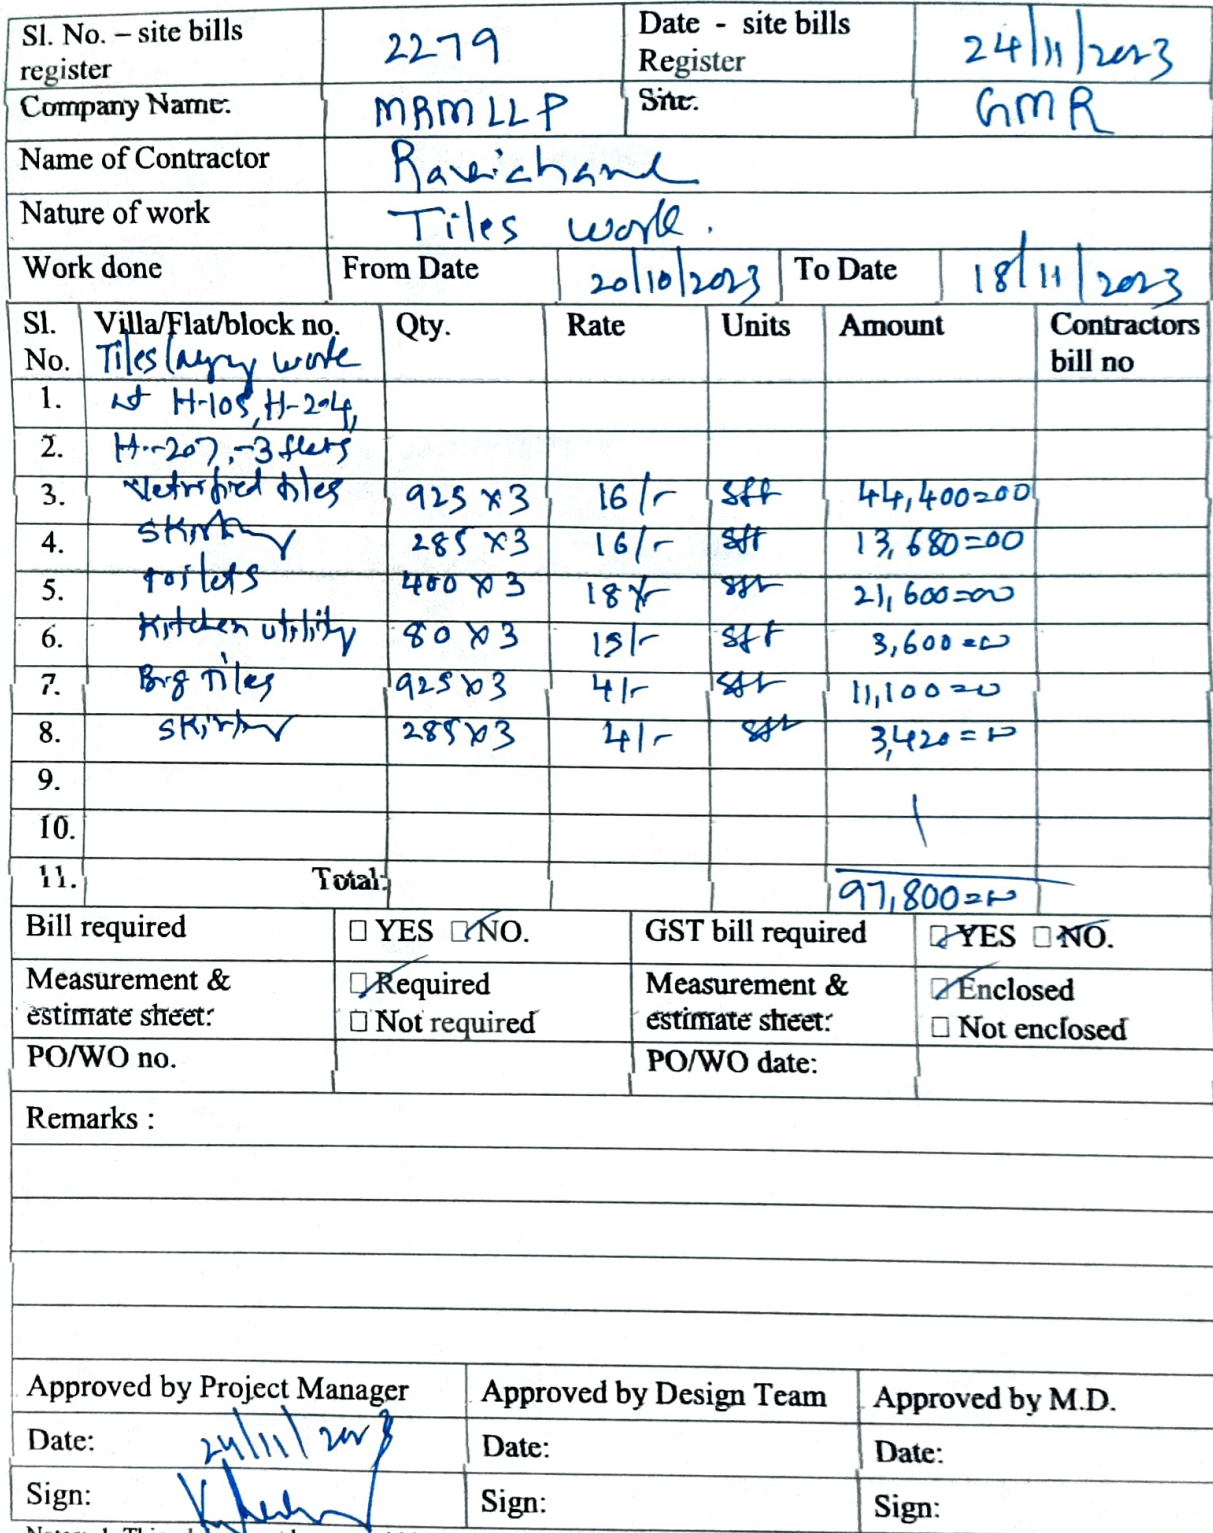 Sl. No. – site bills register 2279 Date - site bills Register 24/11/2023
Company Name: MRMLLP Site: GMR
Name of Contractor Ravichand
Nature of work Tiles work.
Work done From Date 20/10/2023 To Date 18/11/2023
Sl. No. Villa/Flat/block no. Qty. Rate Units Amount Contractors bill no
Tiles laying work
1. at H-105, H-204,
2. H-207,-3 flats
3. Vetrified tiles 925 x 3 16/- sft 44,400=00
4. Skirting 285 x 3 16/- sft 13,680=00
5. toilets 400 x 3 18/- sft 21,600=00
6. Kitchen utility 80 x 3 15/- sft 3,600=00
7. Big Tiles 925 x 3 4/- sft 11,100=00
8. Skirting 285 x 3 4/- sft 3,420=00
9.
10.
11. Total: 97,800=00
Bill required ☐ YES ☑ NO. GST bill required ☑ YES ☑ NO.
Measurement & estimate sheet: ☑ Required ☐ Not required Measurement & estimate sheet: ☑ Enclosed ☐ Not enclosed
PO/WO no. PO/WO date:
Remarks :
Approved by Project Manager Approved by Design Team Approved by M.D.
Date: 24/11/2023 Date: Date:
Sign: Sign: Sign: